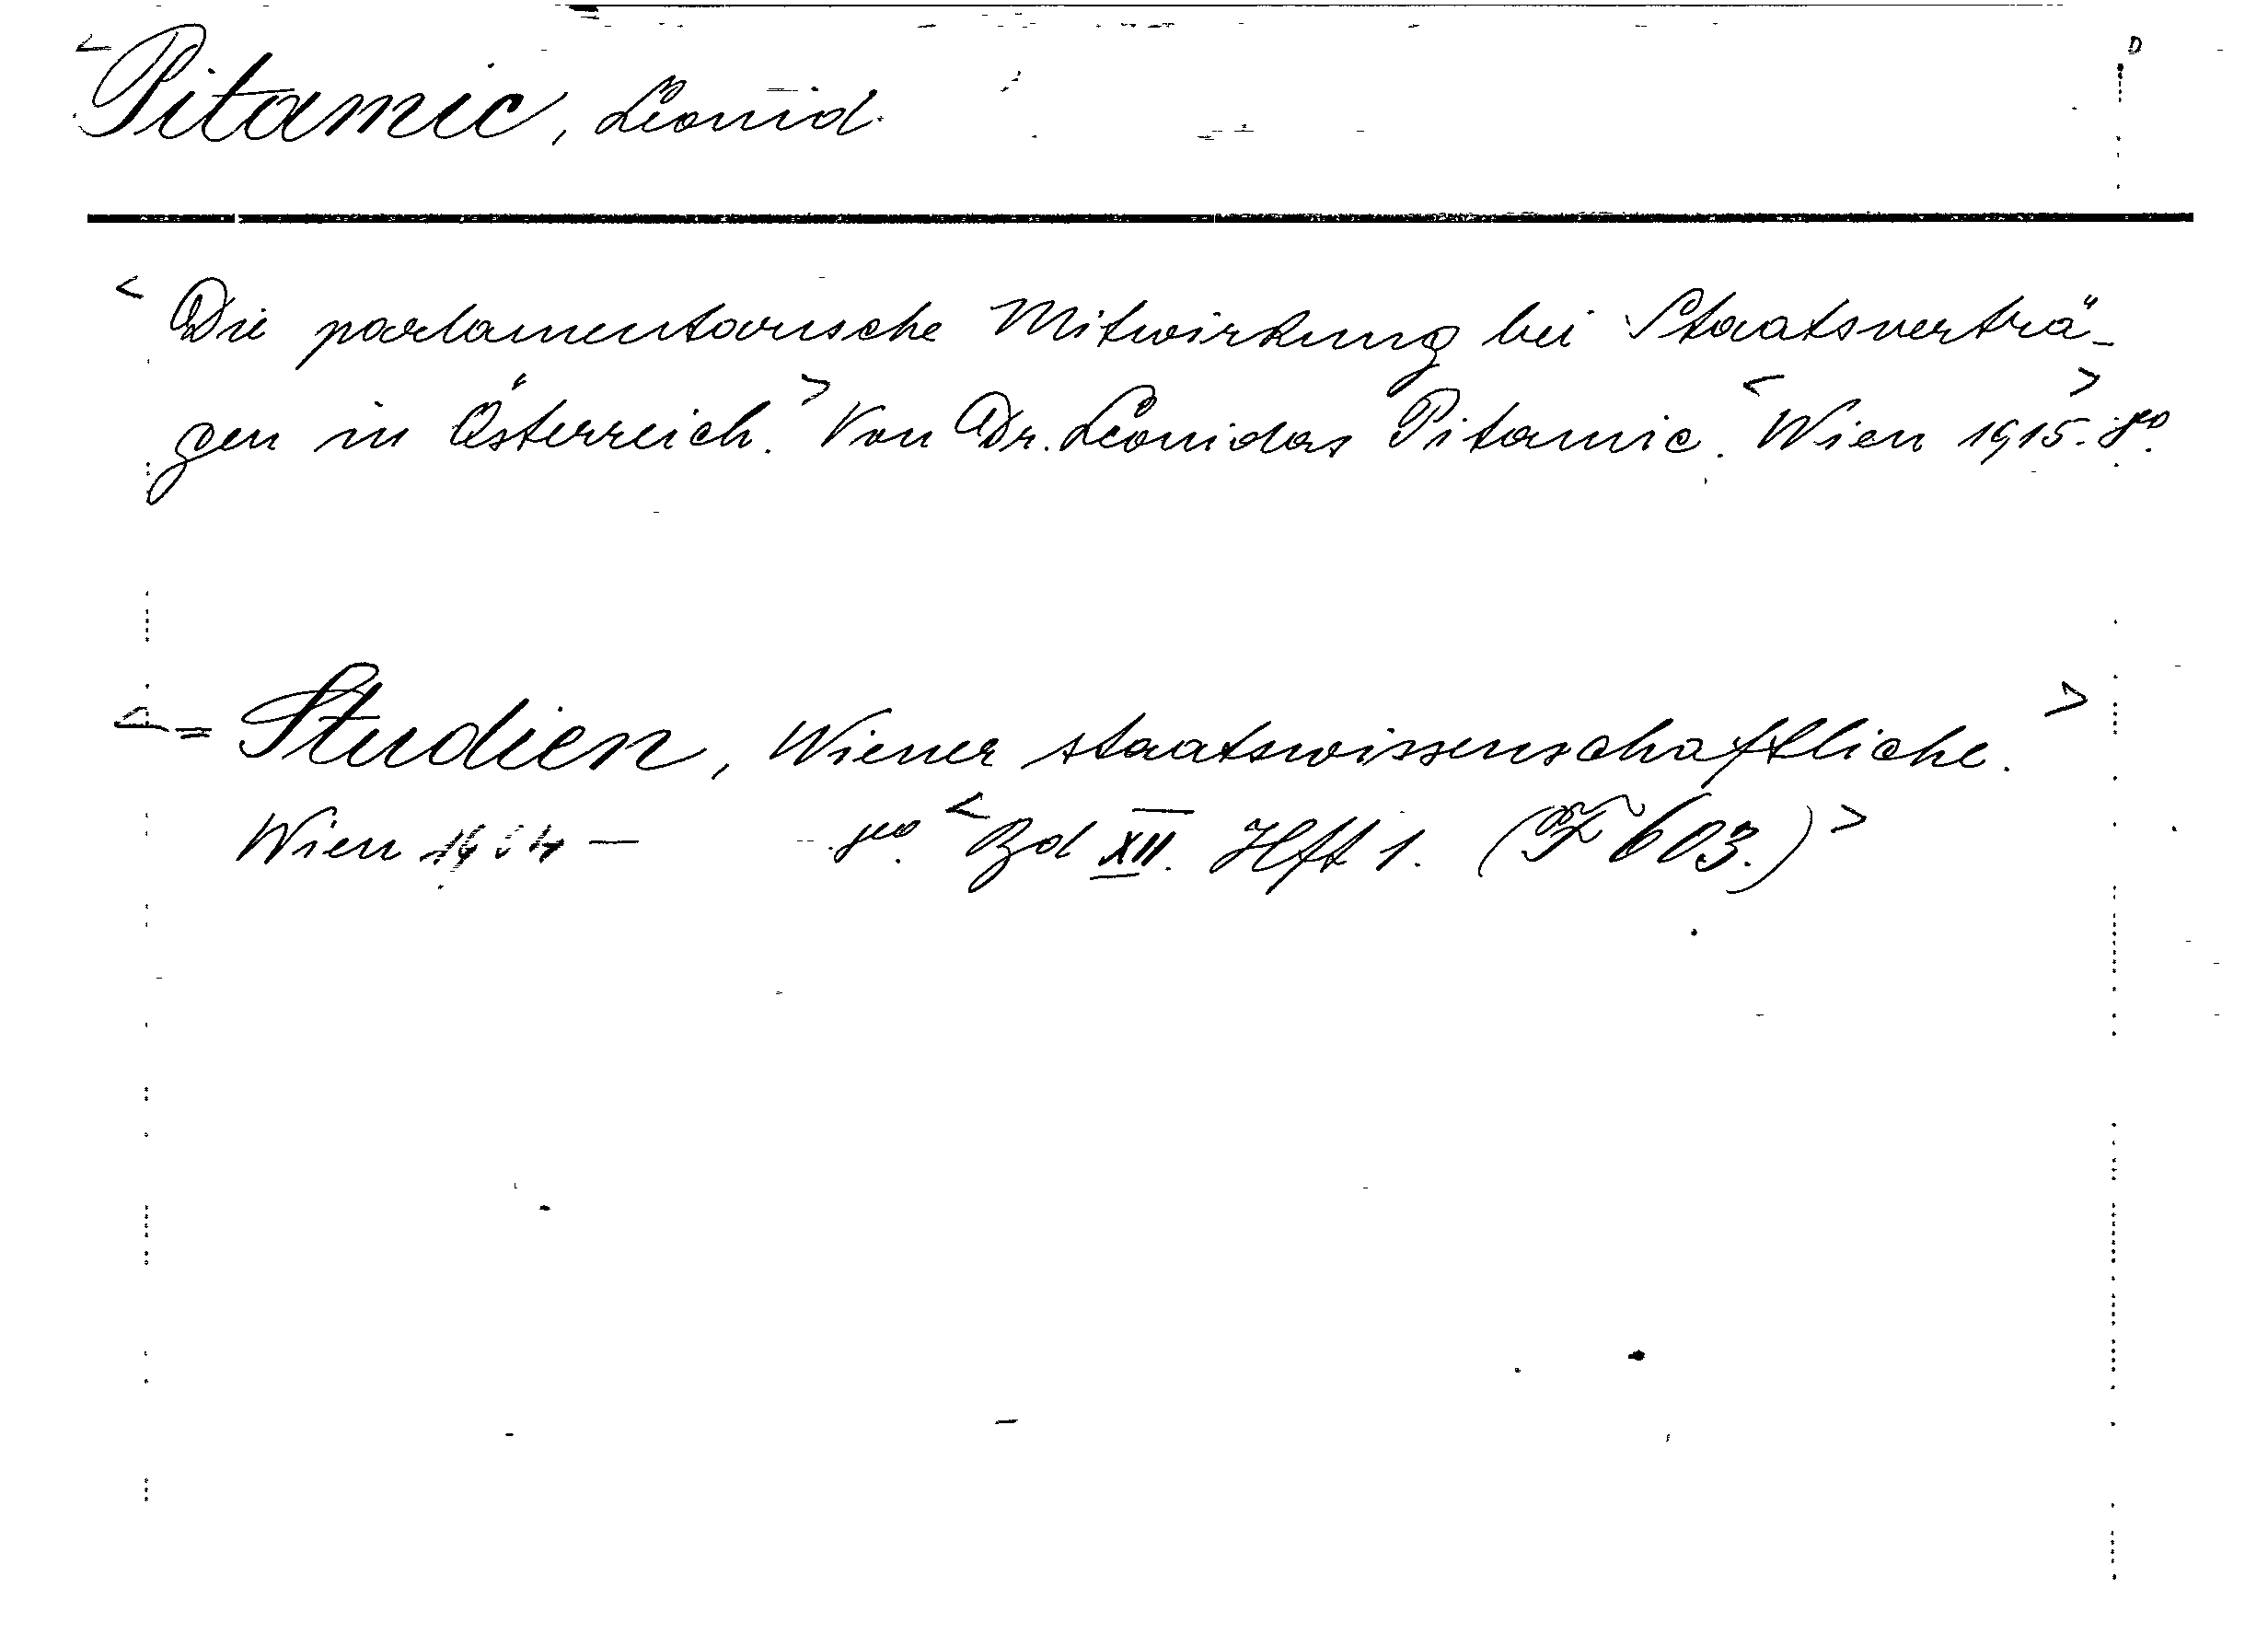 <Pitamic, Leonid.
<Die parlamentarische Mitwirkung bei Staatsverträ-
gen in Österreich.> Von Dr. Leonidas Pitamic. <Wien 1915.> 8°.
<= Studien, Wiener staatswissenschaftliche.>
Wien — 8°. <Bd XII. Hft 1. (F 603.)>